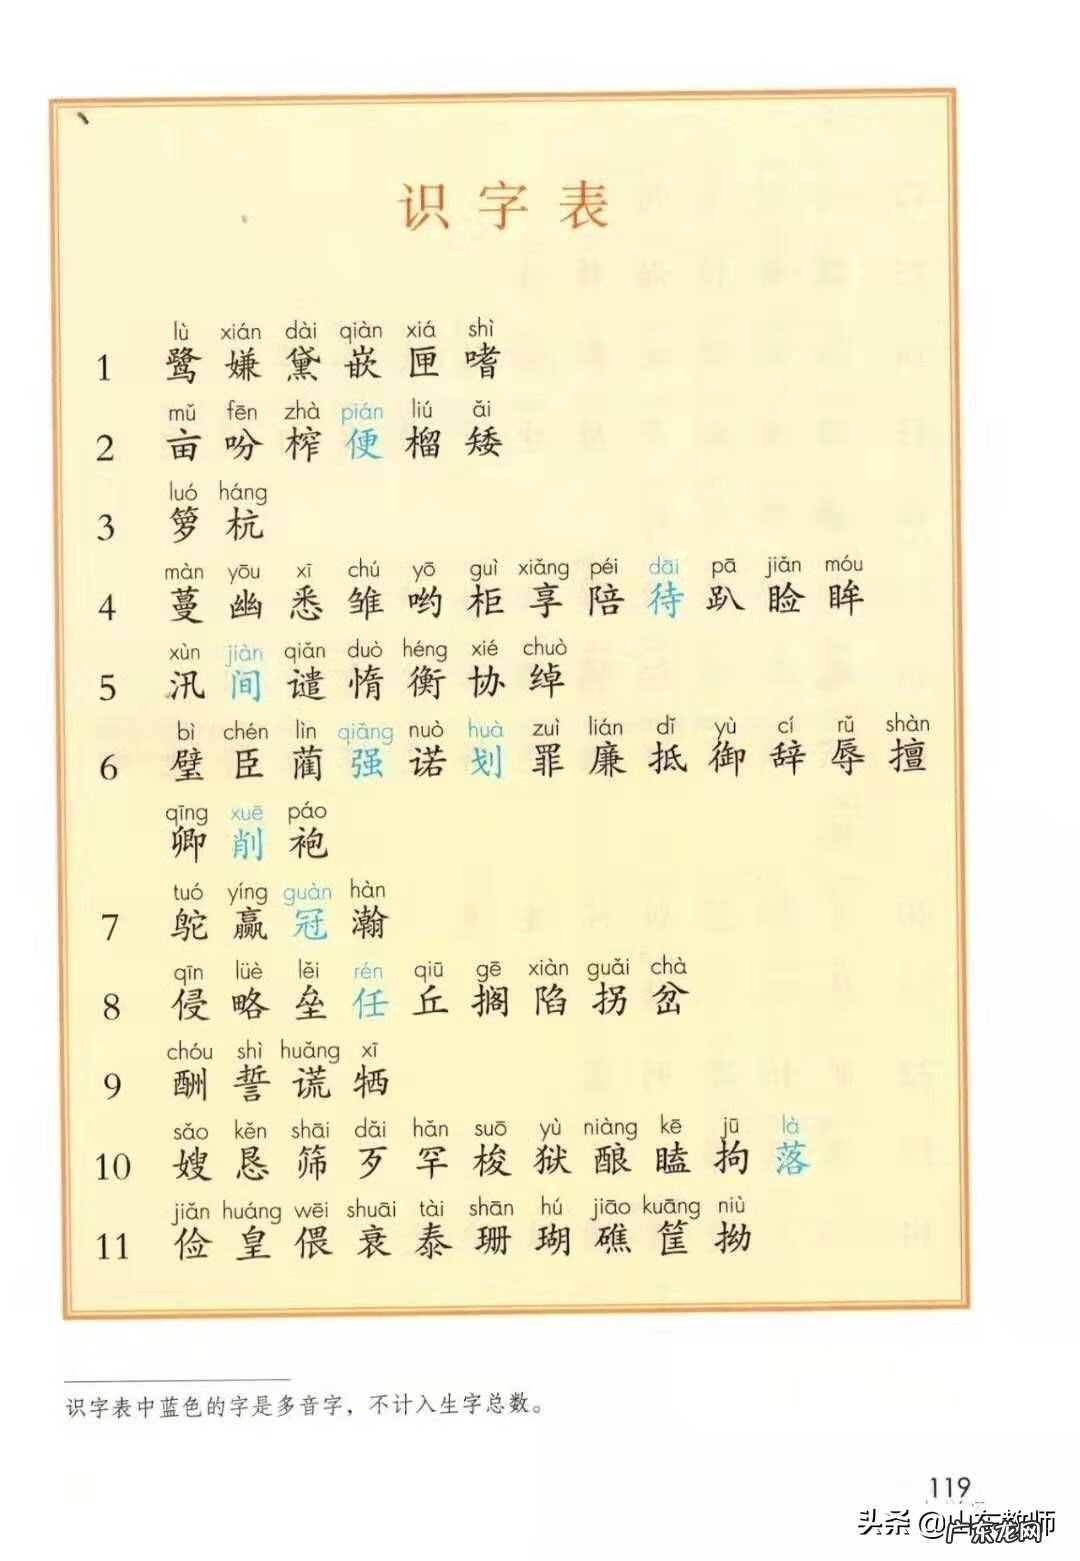 识字表
lù xián dài qiàn xiá shì
1 鹭 嫌 黛 嵌 匣 嗜
mǔ fēn zhà pián liú ǎi
2 亩 吩 榨 便 榴 矮
luó háng
3 箩 杭
màn yōu xī chú yō guì xiǎng péi dāi pā jiǎn móu
4 蔓 幽 悉 雏 哟 柜 享 陪 待 趴 睑 眸
xùn jiàn qiǎn duò héng xié chuò
5 汛 间 谴 惰 衡 协 绰
bì chén lìn qiǎng nuò huà zuì lián dǐ yù cí rǔ shàn
6 璧 臣 蔺 强 诺 划 罪 廉 抵 御 辞 辱 擅
qīng xuē páo
卿 削 袍
tuó yíng guàn hàn
7 鸵 赢 冠 瀚
qīn lüè lěi rén qiū gē xiàn guǎi chà
8 侵 略 垒 任 丘 搁 陷 拐 岔
chóu shì huǎng xī
9 酬 誓 谎 牺
sǎo kěn shāi dǎi hǎn suō yù niàng kē jū là
10 嫂 恳 筛 歹 罕 梭 狱 酿 瞌 拘 落
jiǎn huáng wēi shuāi tài shān hú jiāo kuāng niù
11 俭 皇 偎 衰 泰 珊 瑚 礁 筐 拗
识字表中蓝色的字是多音字，不计入生字总数。
119
头条 @山东教师
广东龙网